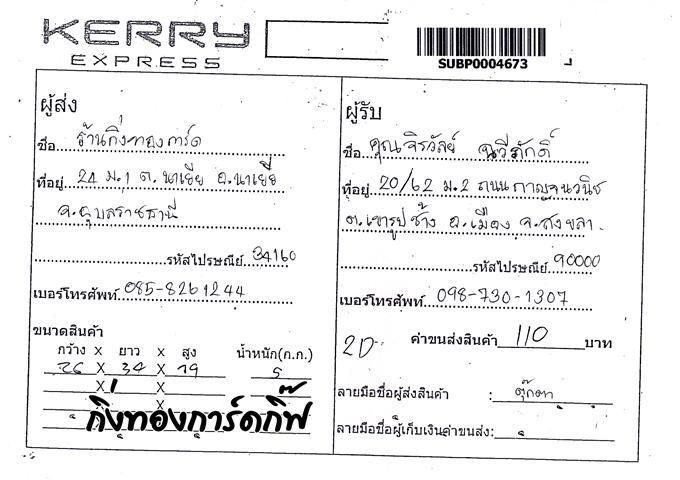 KERRY
EXPRESS
SUBP0004673
ผู้ส่ง
ชื่อ ร้านกิ่งทองการ์ด
ที่อยู่ 24 ม.1 ต.นาเยีย อ.นาเยีย
จ.อุบลราชธานี
รหัสไปรษณีย์ 34160
เบอร์โทรศัพท์ 085-8261244
ขนาดสินค้า
กว้าง x ยาว x สูง น้ำหนัก(ก.ก.)
26 X 34 X 19 5
X X
X
กิ่งทองการ์ดกิ๊ฟ
ผู้รับ
ชื่อ คุณจิรวัลย์ ฉวีภักดิ์
ที่อยู่ 20/62 ม.2 ถนนกาญจนวนิช
ต.เขารูปช้าง อ.เมือง จ.สงขลา
รหัสไปรษณีย์ 90000
เบอร์โทรศัพท์ 098-730-1307
2D ค่าขนส่งสินค้า 110 บาท
ลายมือชื่อผู้ส่งสินค้า : ตุ๊กตา
ลายมือชื่อผู้เก็บเงินค่าขนส่ง: